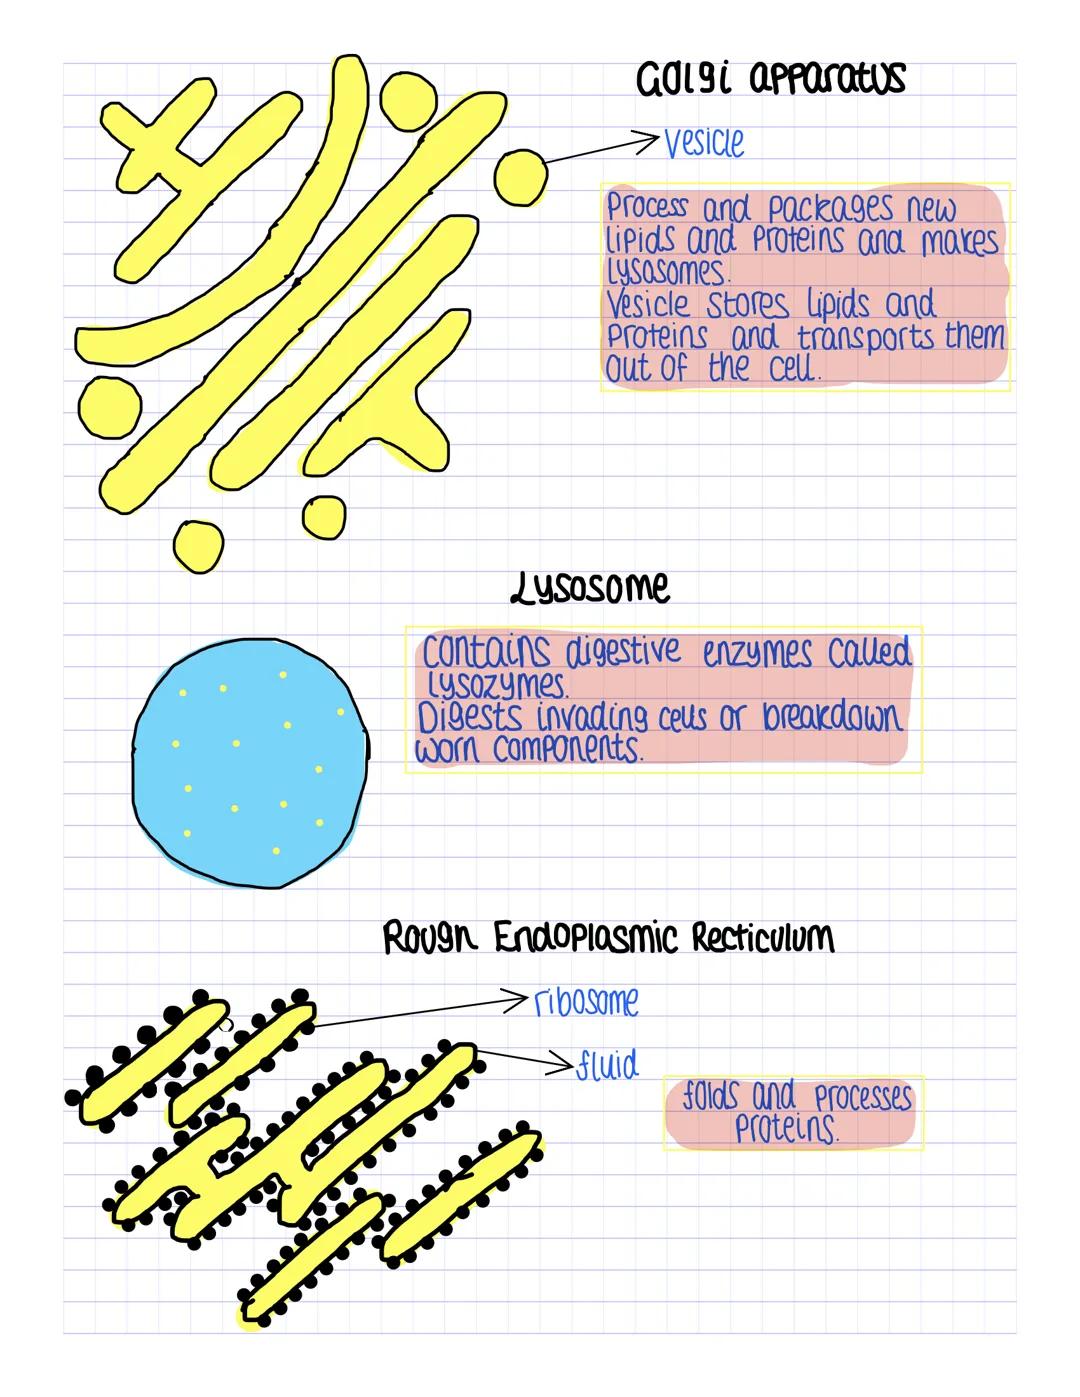 Golgi apparatus
Vesicle
Process and packages new
lipids and Proteins and makes
lysosomes.
Vesicle stores lipids and
Proteins and transports them
out of the cell.
Lysosome
Contains digestive enzymes called
lysozymes.
Digests invading cells or breakdown
worn components.
Rough Endoplasmic Recticulum
ribosome
fluid
folds and processes
Proteins.